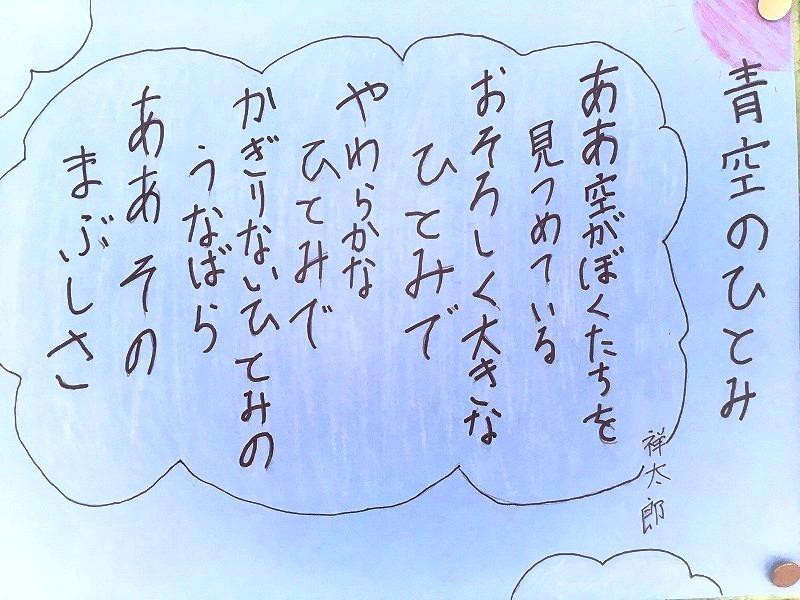 青空のひとみ
祥太郎
ああ空がぼくたちを
見つめている
おそろしく大きな
ひとみで
やわらかな
ひとみで
かぎりないひとみの
うなばら
ああその
まぶしさ